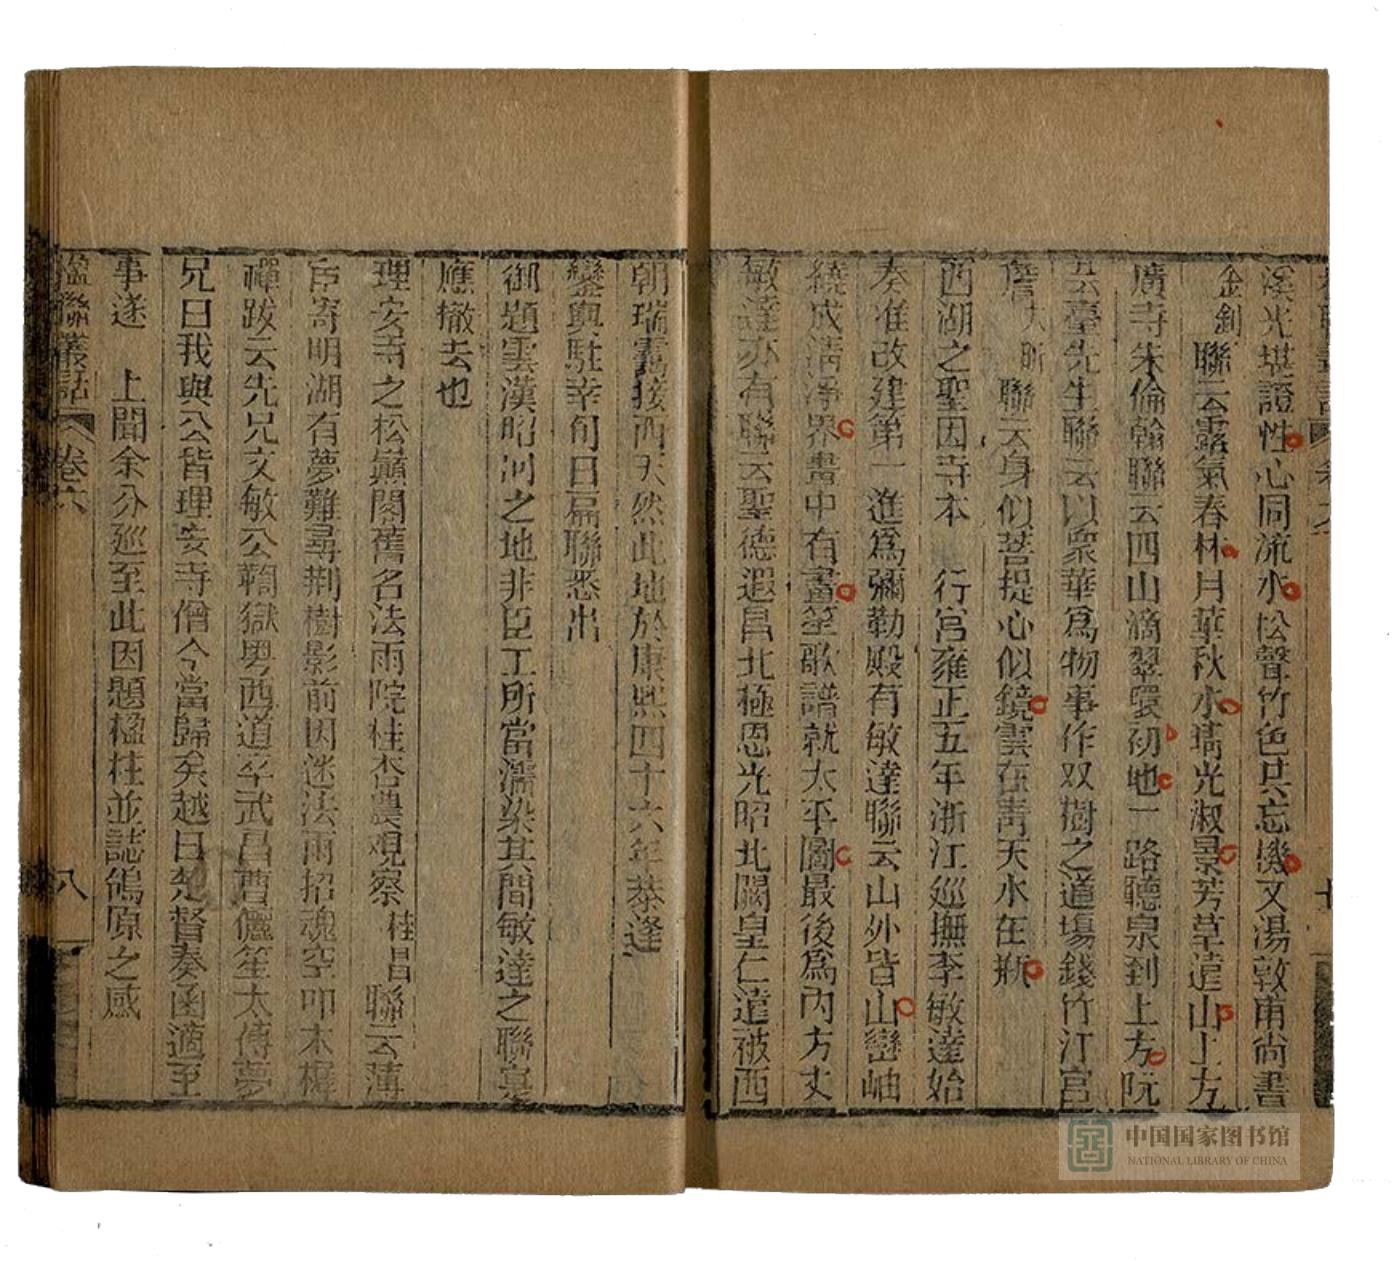 溪光堪證性心同流水松聲竹色共忘機又湯敦甫尚書
金釗聯云露氣春林月華秋水璚光淑景芳草遠山上方
廣寺朱倫翰聯云四山滴翠環初地一路聽泉到上方阮
芸臺先生聯云以衆華爲物事作双樹之道場錢竹汀宮
詹大昕聯云身似菩提心似鏡雲在青天水在瓶
西湖之聖因寺本 行宮雍正五年浙江巡撫李敏達始
奏准改建第一進爲彌勒殿有敏達聯云山外皆山巒岫
繞成清淨界畫中有畫笙歌譜就太平圖最後爲內方丈
敏達亦有聯云聖德遐昌北極恩光昭北闕皇仁遠被西
朝瑞靄接西天然此地於康熙四十六年恭逢
鑾輿駐幸旬日扁聯悉出
御題雲漢昭囘之地非臣工所當濡染其間敏達之聯寔
應撤去也
理安寺之松巔閣舊名法雨院桂杏農觀察桂昌聯云薄
宦寄明湖有夢難尋荆樹影前因迷法雨招魂空叩木樨
禪跋云先兄文敏公鞫獄粤西道卒武昌曹儷笙太傅夢
兄曰我與公皆理安寺僧今當歸矣越日楚督奏函適至
事遂 上聞余分廵至此因題楹柱並誌鴒原之感
楹聯叢話 卷六 八